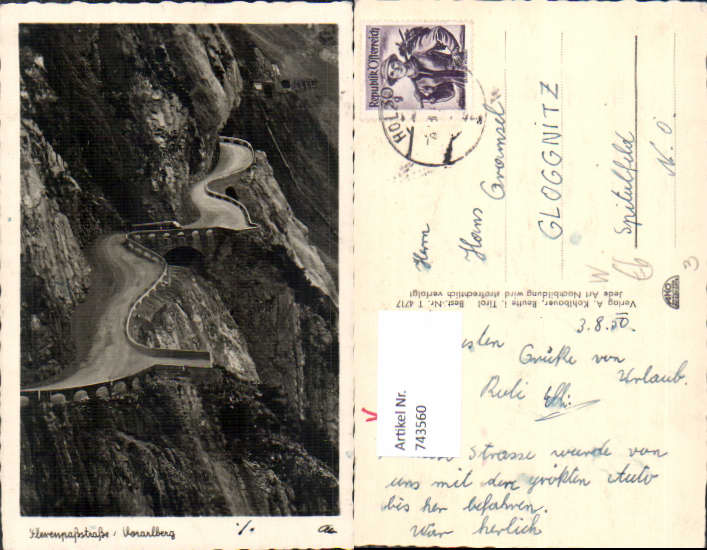 Flexenpaßstraße, Vorarlberg
Republik Österreich
30
HOLZ
Herrn
Hans Gramsel
GLOGGNITZ
Spitalfeld
N. Ö.
Verlag A. Kohlbauer, Reutte i. Tirol Best.-Nr. T 4717
Jede Art Nachbildung wird strafrechtlich verfolgt
3.8.50.
esten
Grüße von
Urlaub.
Rudi Elli
Artikel Nr.
743560
Strasse wurde von
uns mit dem größten Auto
bis her befahren.
War herrlich